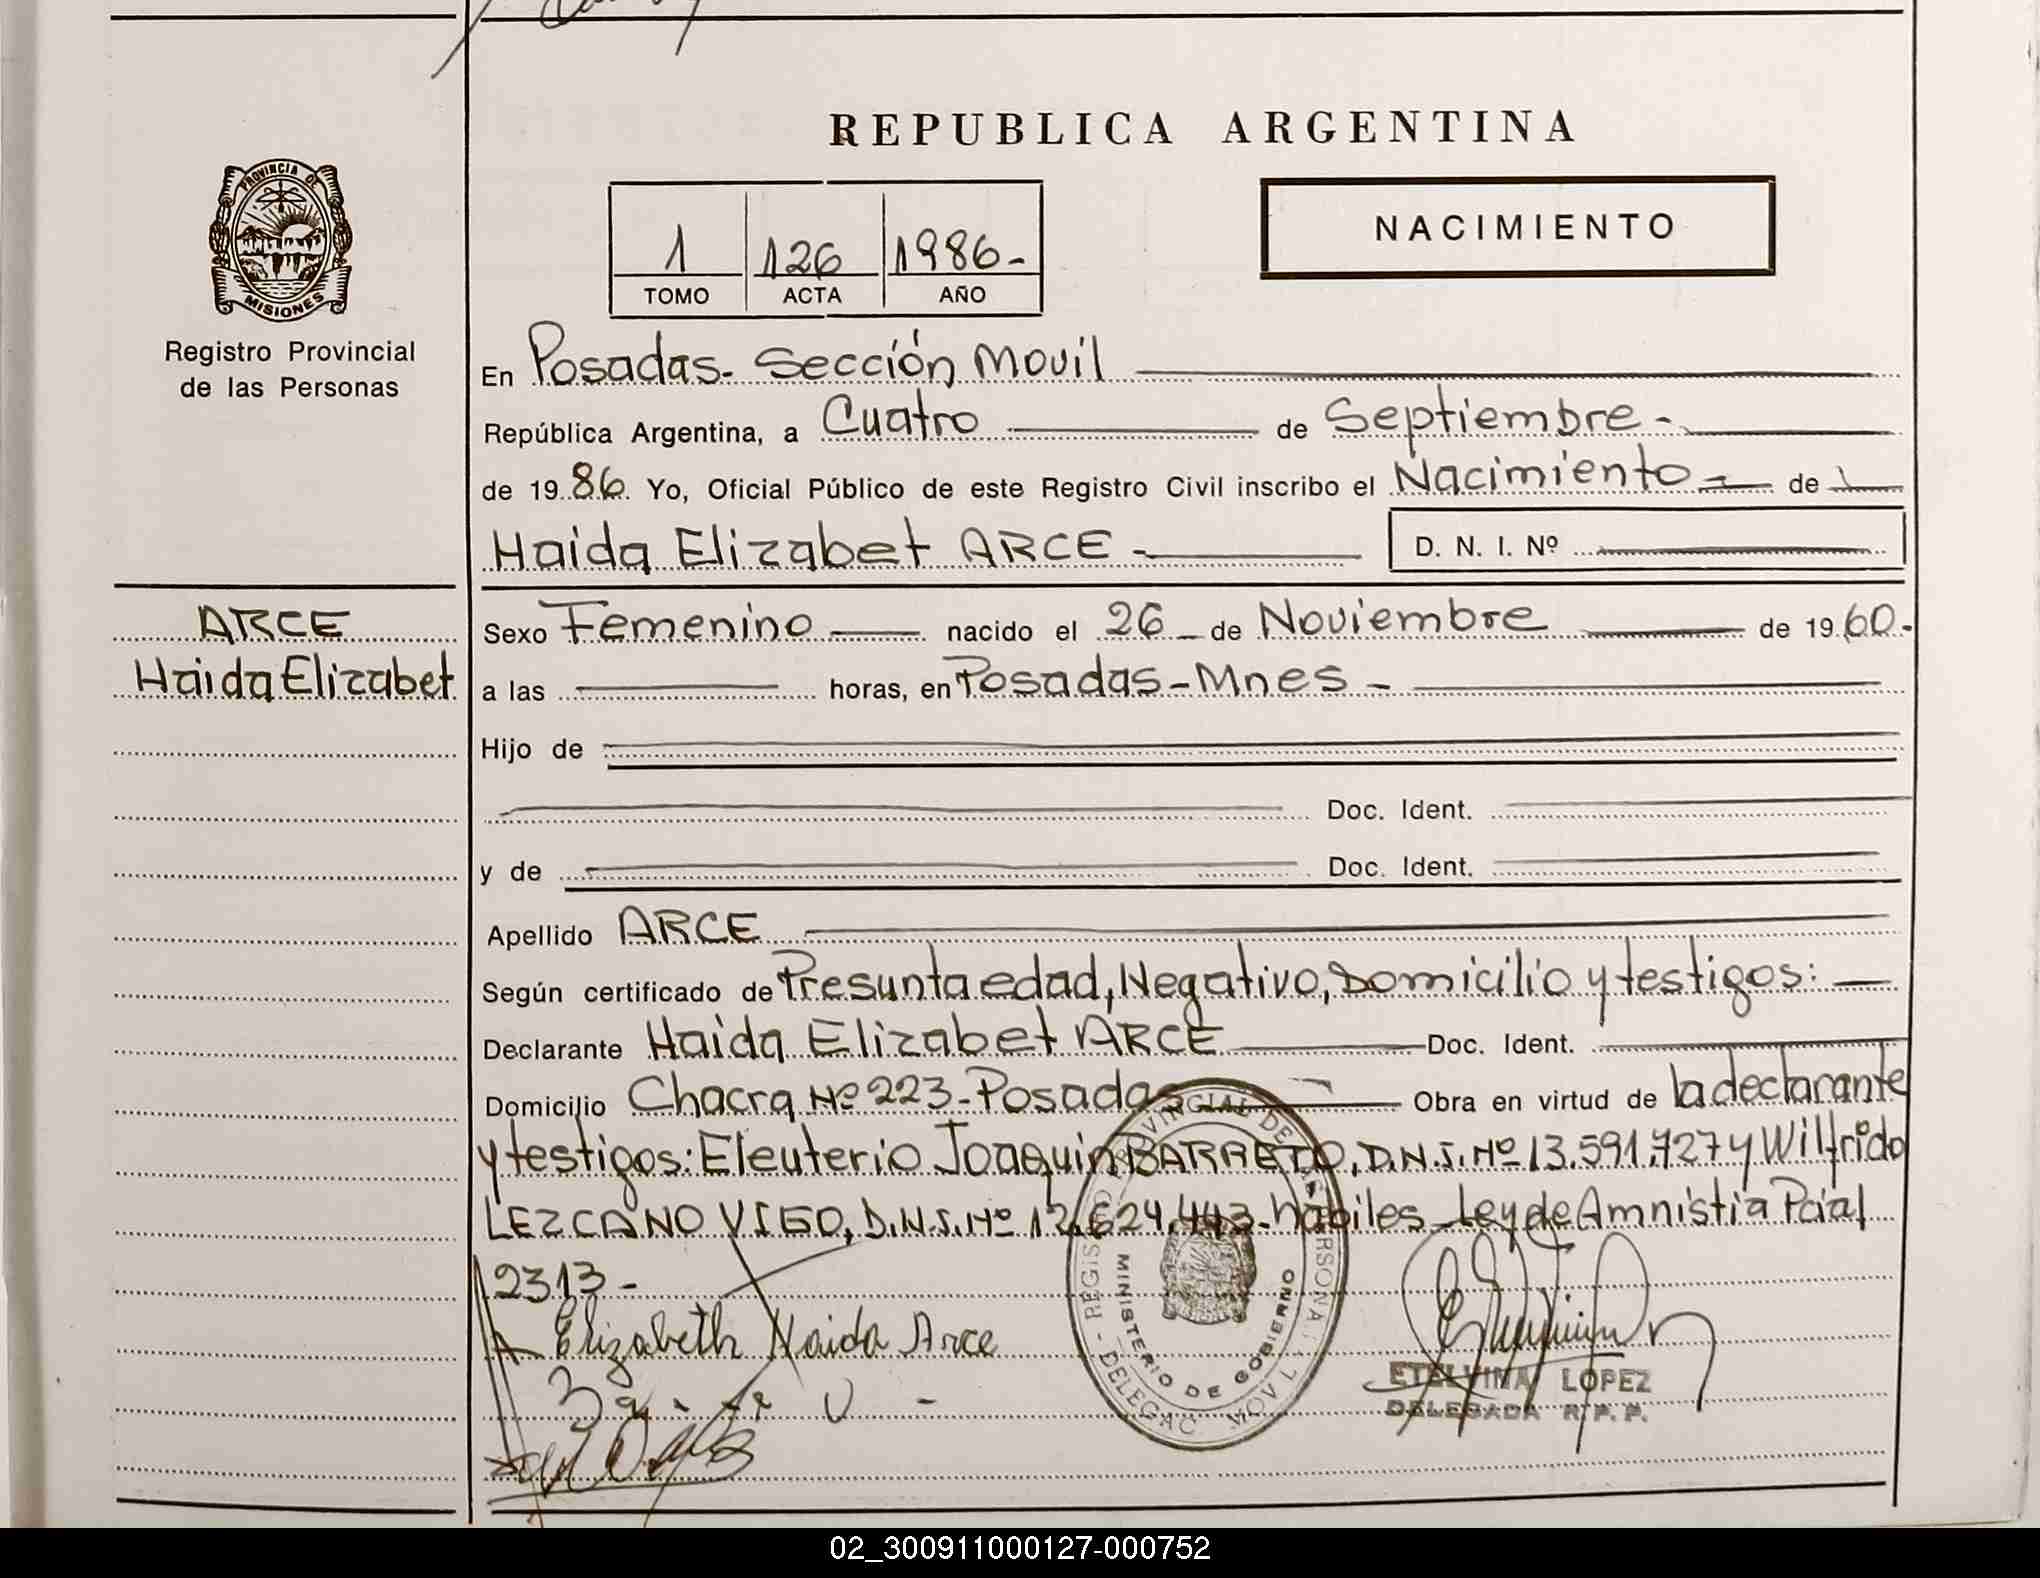 REPUBLICA ARGENTINA
PROVINCIA DE
MISIONES
Registro Provincial
de las Personas
1 126 1986-
TOMO ACTA AÑO
NACIMIENTO
En Posadas- Sección Movil
República Argentina, a Cuatro de Septiembre-
de 1986. Yo, Oficial Público de este Registro Civil inscribo el Nacimiento - de
Haida Elizabet ARCE - D. N. I. Nº
ARCE
Haida Elizabet
Sexo Femenino nacido el 26 de Noviembre de 1960.
a las horas, en Posadas-Mnes-
Hijo de
Doc. Ident.
y de Doc. Ident.
Apellido ARCE
Según certificado de Presunta edad, Negativo, Domicilio y testigos:
Declarante Haida Elizabet ARCE Doc. Ident.
Domicilio Chacra Nº 223-Posadas Obra en virtud de la declarante
y testigos: Eleuterio Joaquin BARRETO, D.N.I. Nº 13.591.727 y Wilfrido
LEZCANO VIGO, D.N.I. Nº 12.624.443- habiles- Ley de Amnistia Pcial
2313-
Elizabeth Haida Arce
REGISTRO PROVINCIAL DE LAS PERSONAS
MINISTERIO DE GOBIERNO
DELEGAC. MOVIL
ETELVINA LOPEZ
DELEGADA R.P.P.
02_300911000127-000752